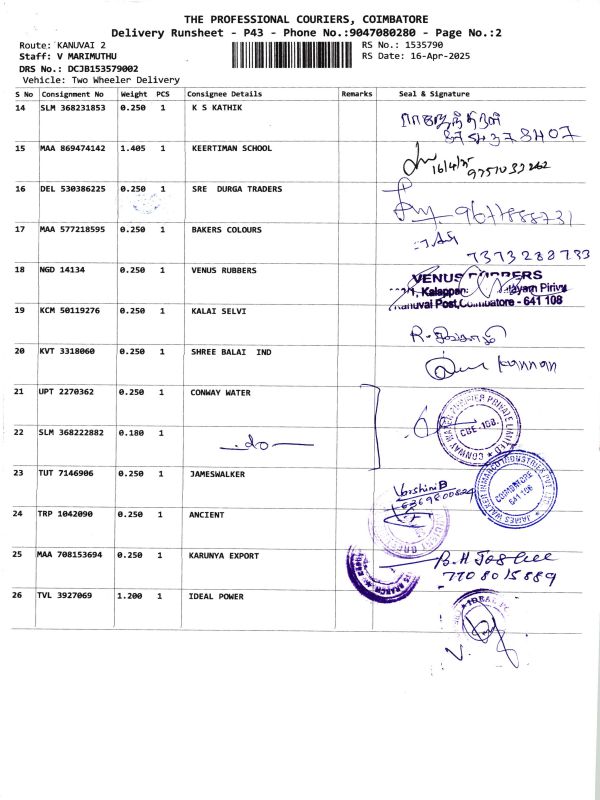 THE PROFESSIONAL COURIERS, COIMBATORE
Delivery Runsheet - P43 - Phone No.:9047080280 - Page No.:2
Route: KANUVAI 2 RS No.: 1535790
Staff: V MARIMUTHU RS Date: 16-Apr-2025
DRS No.: DCJB153579002
Vehicle: Two Wheeler Delivery
S No Consignment No Weight PCS Consignee Details Remarks Seal & Signature
14 SLM 368231853 0.250 1 K S KATHIK
8754378407
15 MAA 869474142 1.405 1 KEERTIMAN SCHOOL
16/4/25
16 DEL 530386225 0.250 1 SRE DURGA TRADERS
17 MAA 577218595 0.250 1 BAKERS COLOURS
7373288733
18 NGD 14134 0.250 1 VENUS RUBBERS VENUS RUBBERS
Kanuvai Post, Coimbatore - 641 108
19 KCM 50119276 0.250 1 KALAI SELVI
20 KVT 3318060 0.250 1 SHREE BALAI IND Kannan
21 UPT 2270362 0.250 1 CONWAY WATER
CONWAY WATER PURIFIER PRIVATE LIMITED
CBE-108.
22 SLM 368222882 0.180 1 -do-
23 TUT 7146906 0.250 1 JAMESWALKER
JAMES WALKER INMARCO INDUSTRIES PVT. LTD.
COIMBATORE
641 108
Varshini B
24 TRP 1042090 0.250 1 ANCIENT
25 MAA 708153694 0.250 1 KARUNYA EXPORT
7708015889
26 TVL 3927069 1.200 1 IDEAL POWER